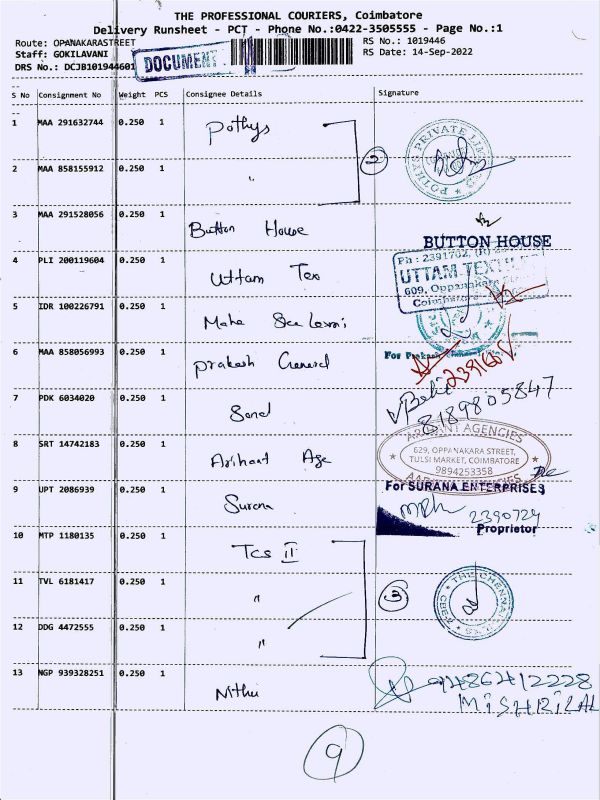 THE PROFESSIONAL COURIERS, Coimbatore
Delivery Runsheet - PCT - Phone No.:0422-3505555 - Page No.:1
Route: OPANAKARASTREET
RS No.: 1019446
Staff: GOKILAVANI
RS Date: 14-Sep-2022
DRS No.: DCJB101944601
DOCUMENT
S No Consignment No Weight PCS Consignee Details Signature
1 MAA 291632744 0.250 1 Pothys
2 MAA 858155912 0.250 1 "
2
POTHYS PRIVATE LIM
3 MAA 291528056 0.250 1 Button House
BUTTON HOUSE
4 PLI 200119604 0.250 1 Uttam Tex
Ph : 2391702,
UTTAM TEXTILE
609, Oppanakara
Coimbatore
5 IDR 100226791 0.250 1 Maha
6 MAA 858056993 0.250 1 Prakash General
For Prakash
7 PDK 6034020 0.250 1
8189805847
8 SRT 14742183 0.250 1 Arihant Age
AGENCIES
629, OPPANAKARA STREET,
TULSI MARKET, COIMBATORE
9894253358
9 UPT 2086939 0.250 1 Surana
For SURANA ENTERPRISES
2390724
Proprietor
10 MTP 1180135 0.250 1 Tcs II
11 TVL 6181417 0.250 1 "
3
THE CHENNAI
CBE
12 DDG 4472555 0.250 1 "
13 NGP 939328251 0.250 1 Nithi
9486412228
MISHRILAL
9